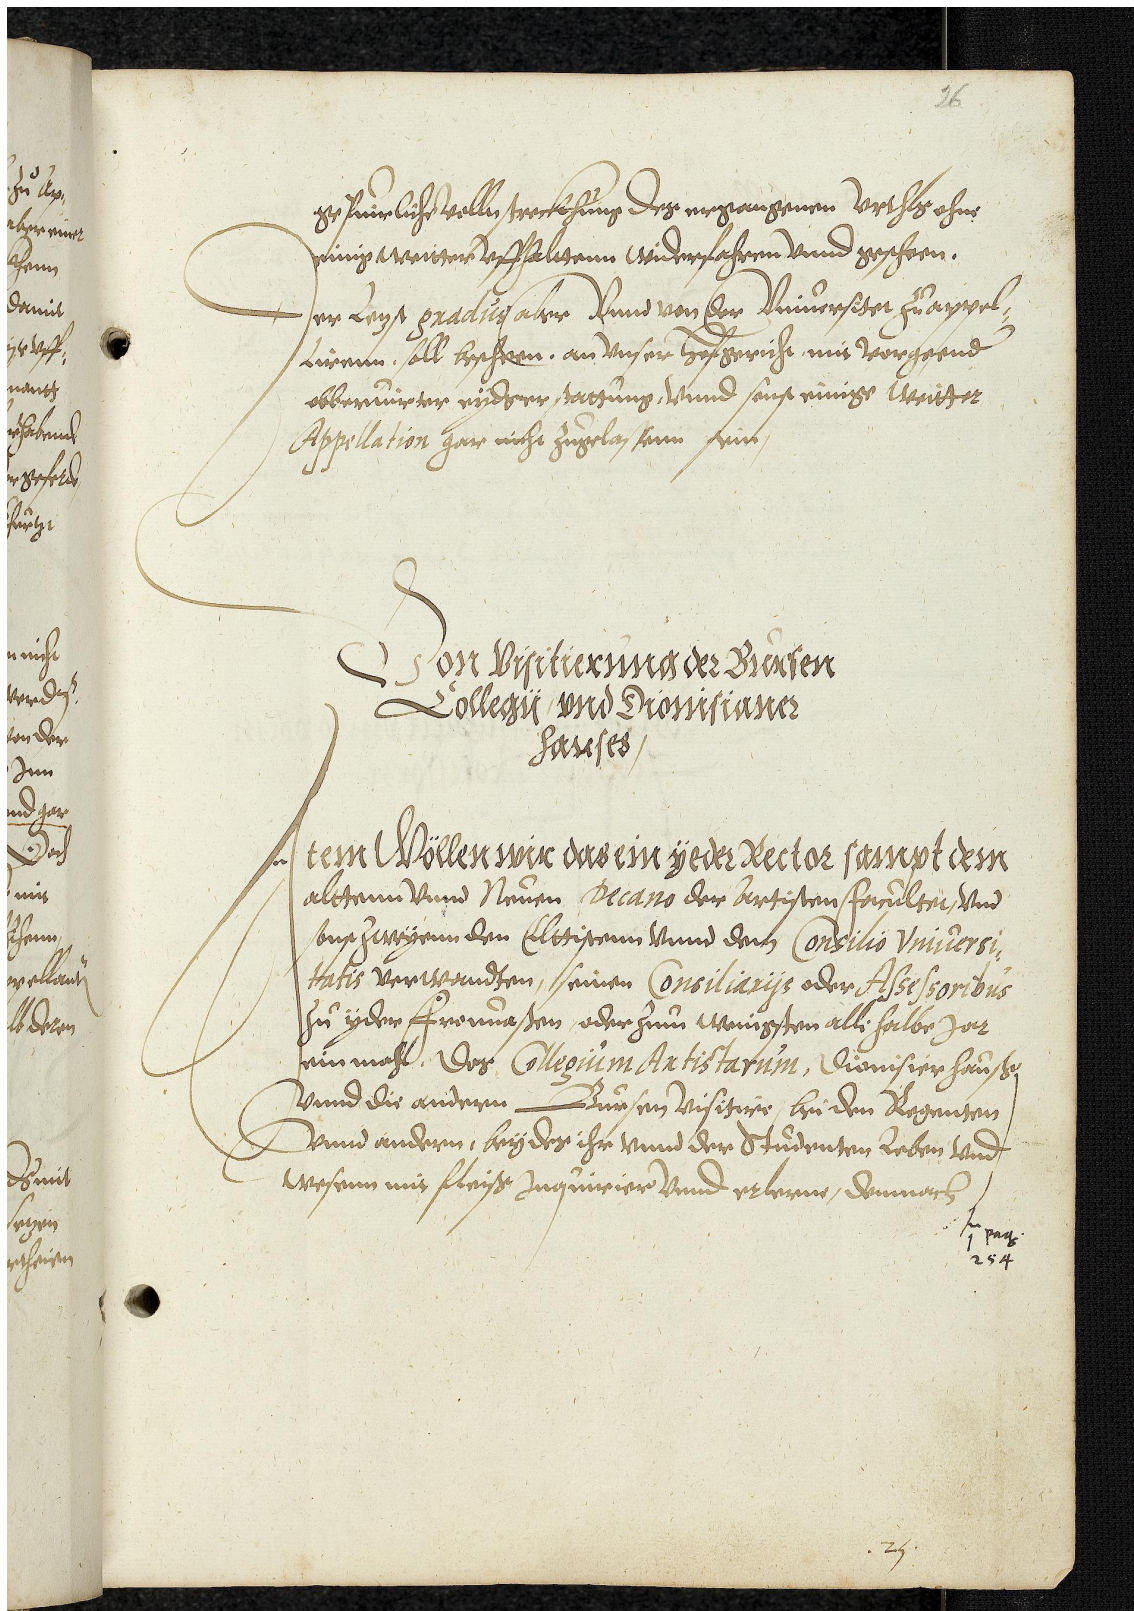 26
gepürliche volln streckhung des ergangenen Urthls ohne
einig weitter uffhaltenn widerfahren vnnd gescheen.
Der Letzst gradus aber Vnnd von der Vniuersitet zu appel-
lirenn. soll bescheen. an vnser hofgericht mit vorgeend
obberuirter eydserstattung, vnnd sonst einige weitter
Appellation gar nicht zugelassenn sein,
Von Visitierung der Bursen
Collegij vnd Dionisianer
hauses,
Item Wöllen wir das ein yeder Rector sampt dem
alttenn vnnd Neuen Decano der Artisten facultet, vnd
sonst zweyenn den Elttistenn vnnd dem Consilio Vniuersi-
tatis verwandten, seinen Consiliarijs oder Assessoribus
zu yder Fronuasten, oder zum wenigsten alle halbe Jar
ein mahl. Das Collegium Artistarum, Dionisier hauß,
vnnd die andern Bursen visitire, bei den Regenten
vnnd andern, beydes ihr vnnd der Studenten Leben vnd
wesenn mit fleiß Inquirier vnnd erlerne, demnach
pag.
254